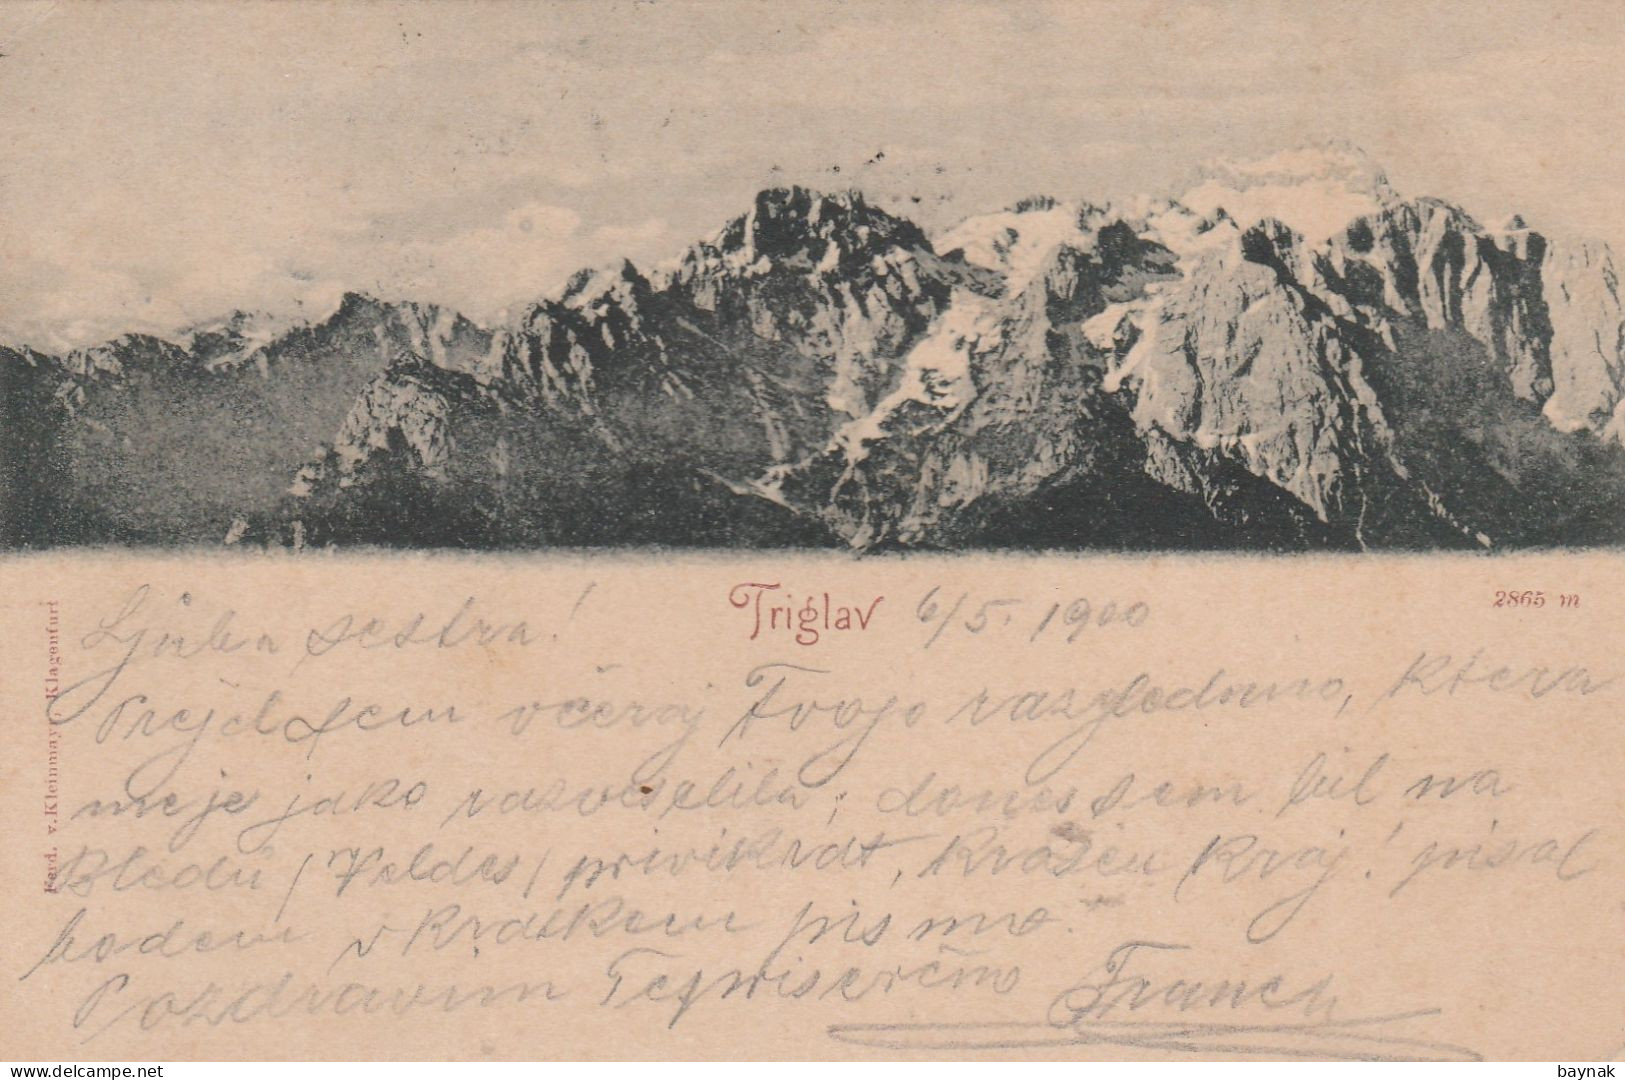 Triglav 6/5. 1900
2865 m
Ferd. v. Kleinmayr, Klagenfurt
Ljuba sestra!
Prejel sem včeraj Tvojo razglednico, ktera
me je jako razveselila; danes sem bil na
Bledu /Veldes/ prvikrat, krasen kraj! pisal
bodem v kratkem pismo.
Pozdravim Te prisrčno Franch
delcampe.net
baynak